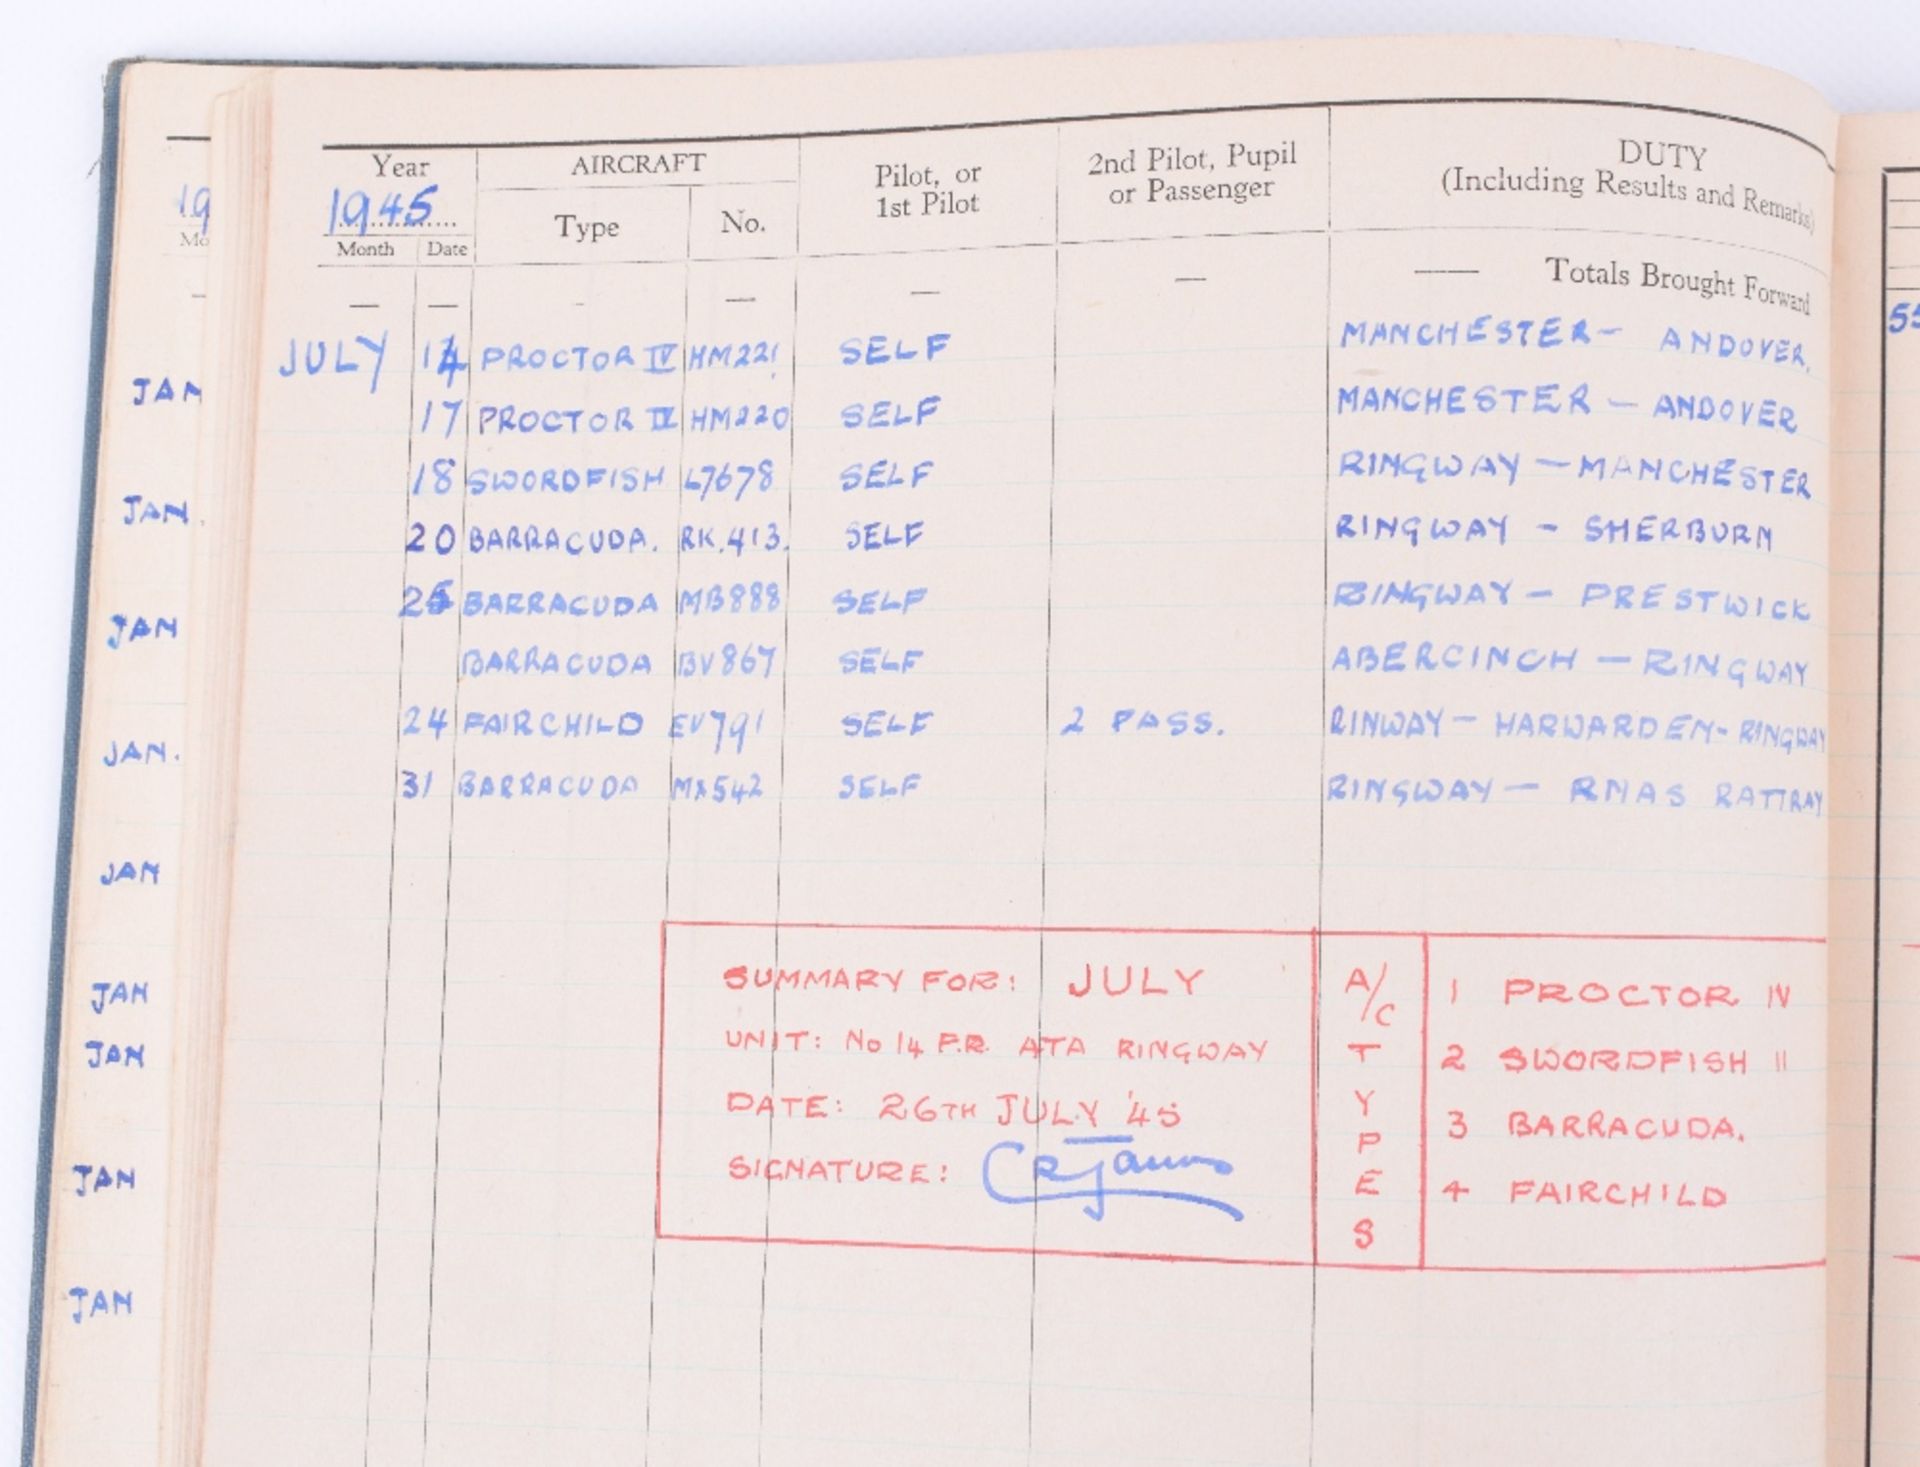 Year AIRCRAFT Pilot, or 1st Pilot 2nd Pilot, Pupil or Passenger DUTY (Including Results and Remarks)
1945 Type No.
Month Date
— — - — — — — Totals Brought Forward
JULY 14 PROCTOR IV HM221 SELF MANCHESTER - ANDOVER.
17 PROCTOR IV HM220 SELF MANCHESTER - ANDOVER
18 SWORDFISH L7678 SELF RINGWAY - MANCHESTER
20 BARRACUDA. RK.413. SELF RINGWAY - SHERBURN
25 BARRACUDA MB888 SELF RINGWAY - PRESTWICK
BARRACUDA BV867 SELF ABERCINCH - RINGWAY
24 FAIRCHILD EV791 SELF 2 PASS. RINWAY - HARWARDEN - RINGWAY
31 BARRACUDA MX542 SELF RINGWAY - RNAS RATTRAY
SUMMARY FOR: JULY
UNIT: No 14 F.P. ATA RINGWAY
DATE: 26TH JULY '45
SIGNATURE:
A/C TYPES
1 PROCTOR IV
2 SWORDFISH II
3 BARRACUDA.
4 FAIRCHILD
19
Mo
JAN
JAN.
JAN
JAN.
JAN
JAN
JAN
JAN
JAN
55